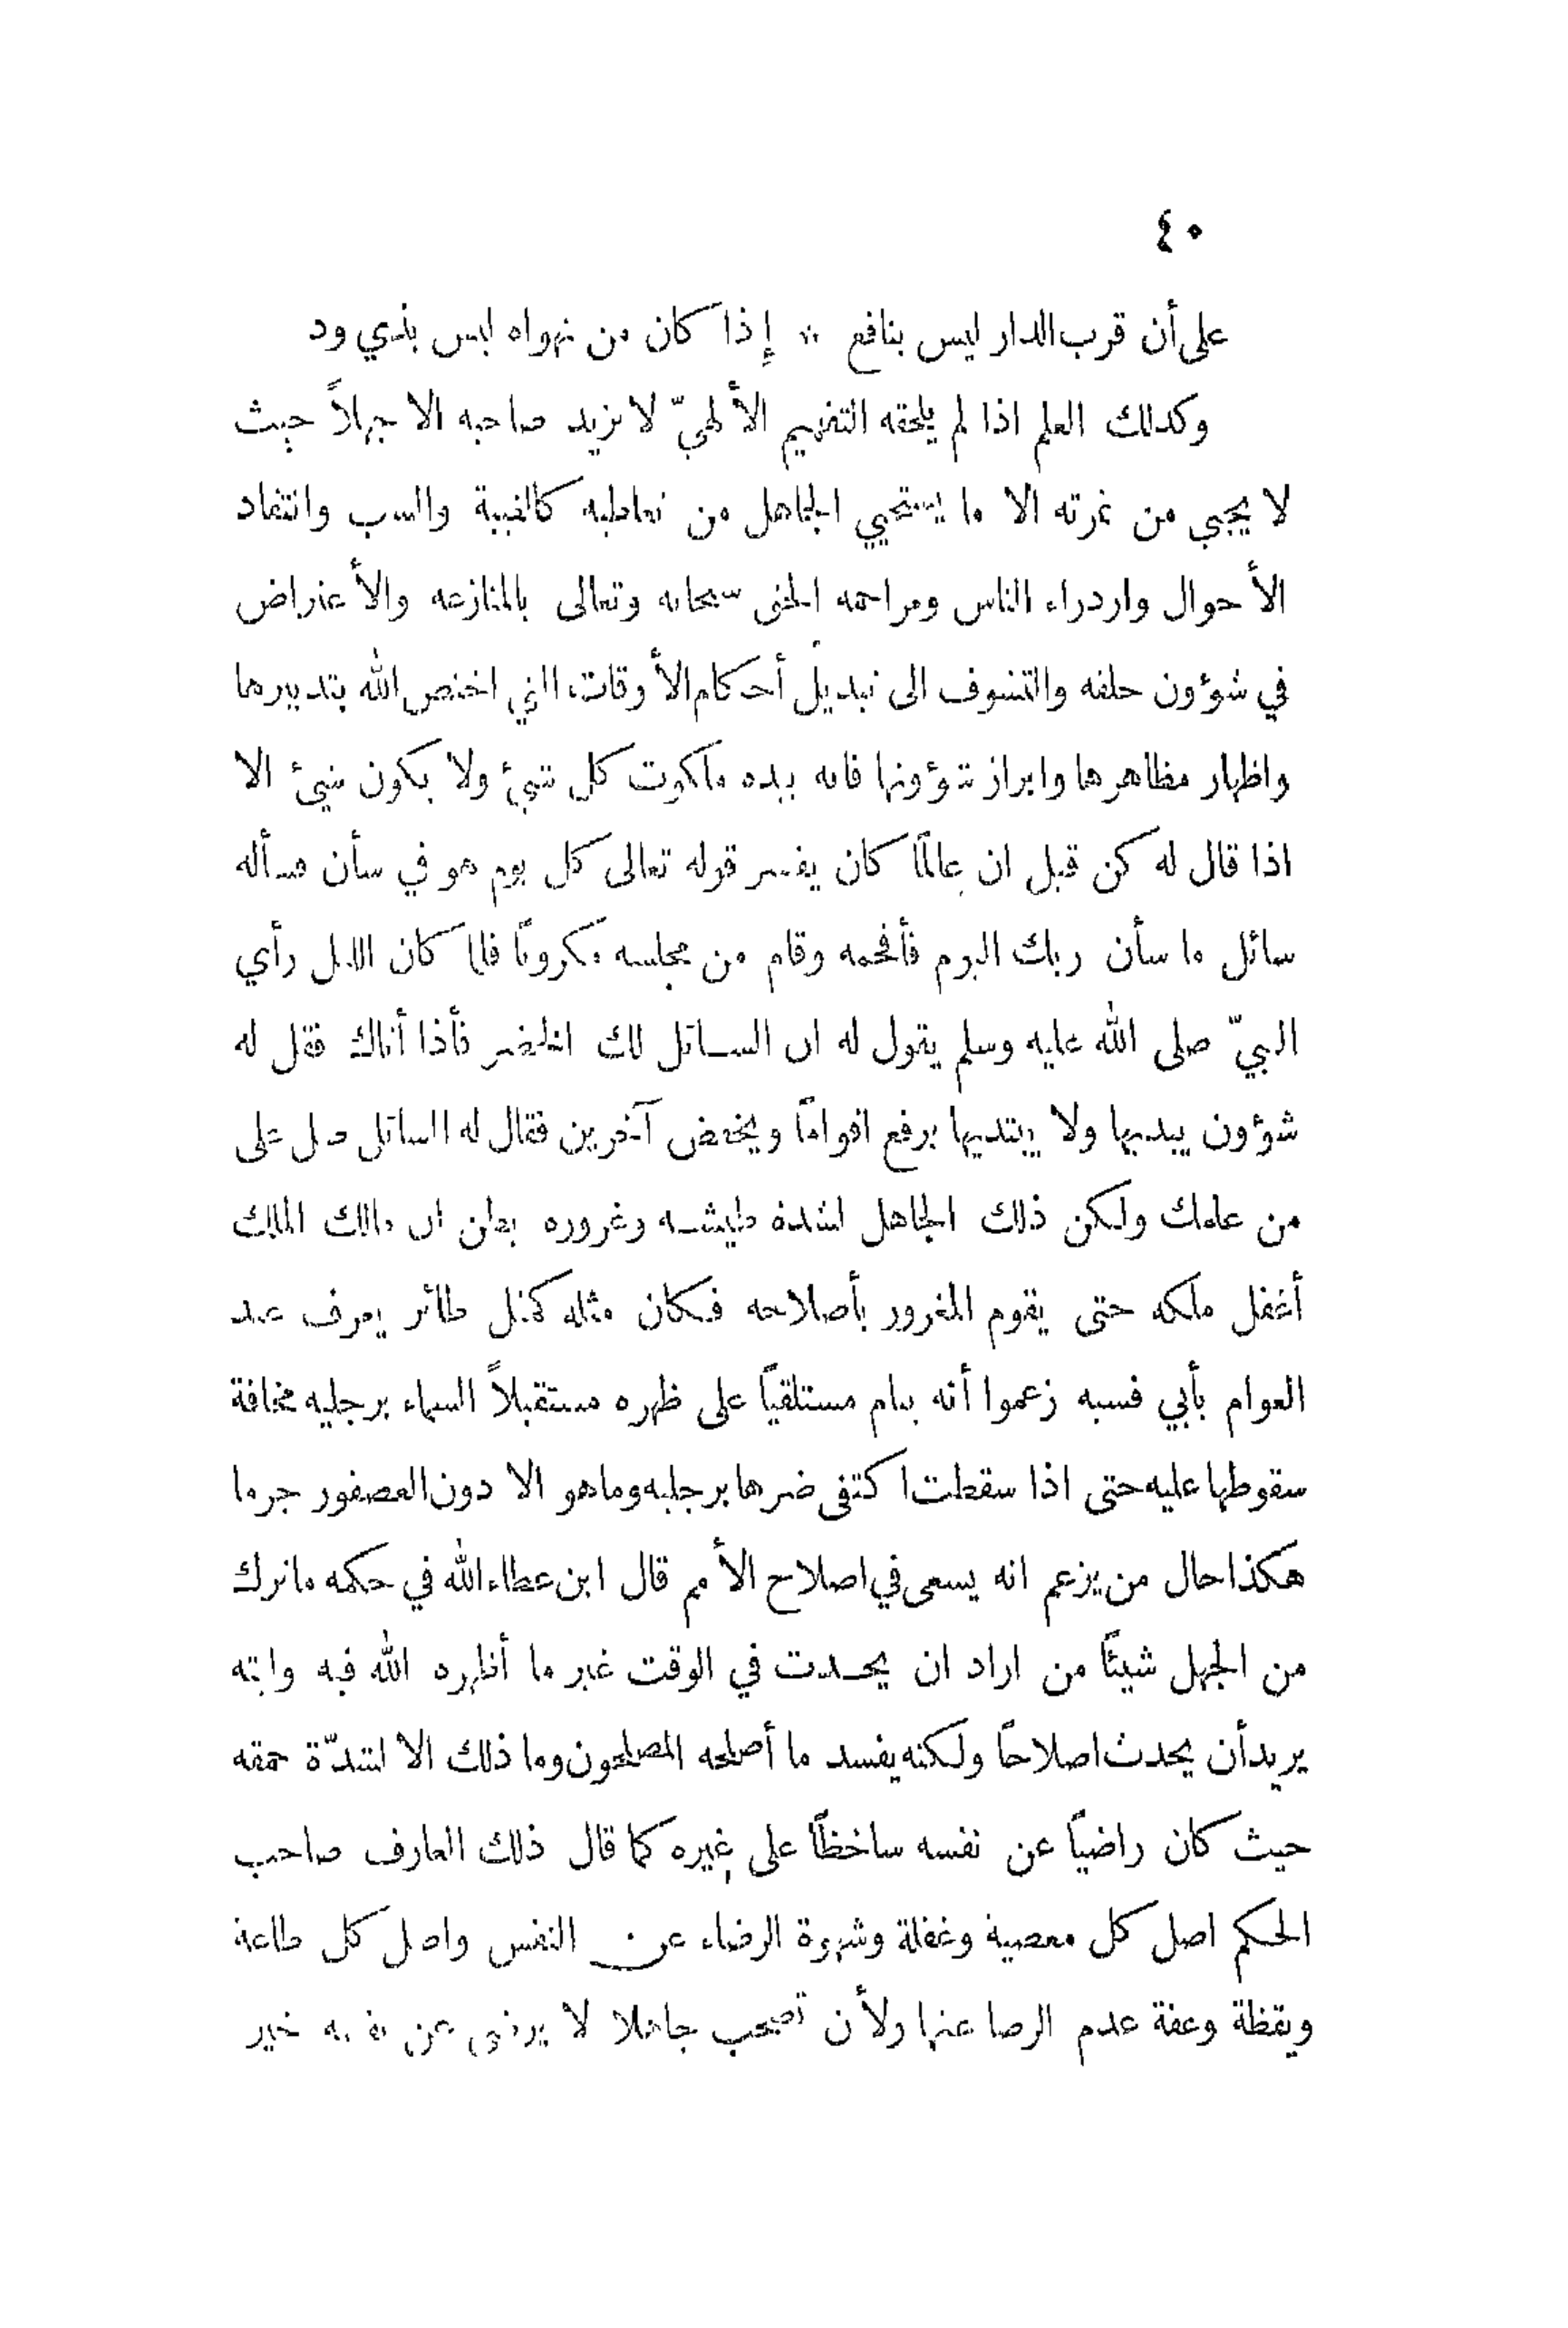 ٤٠
على أن قرب الدار ليس بنافع * إذا كان من تهواه ليس بذي ود
وكذلك العلم اذا لم يلحقه التفهيم الألهيّ لا يزيد صاحبه الا جهلاً حيث
لا يجبي من ثمرته الا ما يستحيي الجاهل من تعاطيه كالغيبة والسب وانتقاد
الأحوال وازدراء الناس ومزاحمة الحق سبحانه وتعالى بالمنازعة والأعتراض
في شؤون خلقه والتشوف الى تبديل أحكام الأوقات التي اختص الله بتدبيرها
واظهار مظاهرها وابراز شؤونها فانه بيده ملكوت كل شيئ ولا يكون شيئ الا
اذا قال له كن قيل ان عالمًا كان يفسر قوله تعالى كل يوم هو في شأن فسأله
سائل ما شأن ربك اليوم فأفحمه وقام من مجلسه مكروبًا فلما كان الليل رأي
النبيّ صلى الله عليه وسلم يقول له ان السائل لك الخضر فأذا أتاك فقل له
شؤون يبديها ولا يبتديها يرفع اقوامًا ويخفض آخرين فقال له السائل صل على
من علمك ولكن ذلك الجاهل لشدة طيشه وغروره يظن ان مالك الملك
أغفل ملكه حتى يقوم المغرور بأصلاحه فكان مثله كمثل طائر يعرف عند
العوام بأبي فسيه زعموا أنه ينام مستلقيًا على ظهره مستقبلاً السماء برجليه مخافة
سقوطها عليه حتى اذا سقطت اكتفى ضرها برجليه وما هو الا دون العصفور جرما
هكذا حال من يزعم انه يسعى في اصلاح الأمم قال ابن عطاء الله في حكمه ما ترك
من الجهل شيئًا من اراد ان يحدث في الوقت غير ما أظهره الله فيه وانه
يريد أن يحدث اصلاحًا ولكنه يفسد ما أصلحه المصلحون وما ذلك الا لشدّة حمقه
حيث كان راضيًا عن نفسه ساخطًا على غيره كما قال ذلك العارف صاحب
الحكم اصل كل معصية وغفلة وشهوة الرضاء عن النفس واصل كل طاعة
ويقظة وعفة عدم الرضا عنها ولأن تصحب جاهلا لا يرضى عن نفسه خير